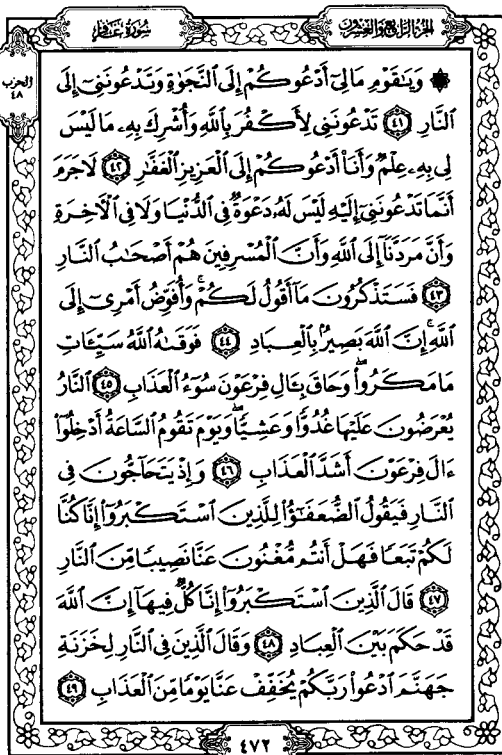 الجزء الرابع والعشرون
سورة غافر
الحزب
٤٨
۞ وَيَٰقَوۡمِ مَالِيٓ أَدۡعُوكُمۡ إِلَى ٱلنَّجَوٰةِ وَتَدۡعُونَنِيٓ إِلَى
ٱلنَّارِ ٤١ تَدۡعُونَنِي لِأَكۡفُرَ بِٱللَّهِ وَأُشۡرِكَ بِهِۦ مَا لَيۡسَ
لِي بِهِۦ عِلۡمٞ وَأَنَا۠ أَدۡعُوكُمۡ إِلَى ٱلۡعَزِيزِ ٱلۡغَفَّٰرِ ٤٢ لَا جَرَمَ
أَنَّمَا تَدۡعُونَنِيٓ إِلَيۡهِ لَيۡسَ لَهُۥ دَعۡوَةٞ فِي ٱلدُّنۡيَا وَلَا فِي ٱلۡأٓخِرَةِ
وَأَنَّ مَرَدَّنَآ إِلَى ٱللَّهِ وَأَنَّ ٱلۡمُسۡرِفِينَ هُمۡ أَصۡحَٰبُ ٱلنَّارِ
٤٣ فَسَتَذۡكُرُونَ مَآ أَقُولُ لَكُمۡۚ وَأُفَوِّضُ أَمۡرِيٓ إِلَى
ٱللَّهِۚ إِنَّ ٱللَّهَ بَصِيرُۢ بِٱلۡعِبَادِ ٤٤ فَوَقَىٰهُ ٱللَّهُ سَيِّـَٔاتِ
مَا مَكَرُواْۖ وَحَاقَ بِـَٔالِ فِرۡعَوۡنَ سُوٓءُ ٱلۡعَذَابِ ٤٥ ٱلنَّارُ
يُعۡرَضُونَ عَلَيۡهَا غُدُوّٗا وَعَشِيّٗاۖ وَيَوۡمَ تَقُومُ ٱلسَّاعَةُ أَدۡخِلُوٓاْ
ءَالَ فِرۡعَوۡنَ أَشَدَّ ٱلۡعَذَابِ ٤٦ وَإِذۡ يَتَحَآجُّونَ فِي
ٱلنَّارِ فَيَقُولُ ٱلضُّعَفَٰٓؤُاْ لِلَّذِينَ ٱسۡتَكۡبَرُوٓاْ إِنَّا كُنَّا
لَكُمۡ تَبَعٗا فَهَلۡ أَنتُم مُّغۡنُونَ عَنَّا نَصِيبٗا مِّنَ ٱلنَّارِ
٤٧ قَالَ ٱلَّذِينَ ٱسۡتَكۡبَرُوٓاْ إِنَّا كُلّٞ فِيهَآ إِنَّ ٱللَّهَ
قَدۡ حَكَمَ بَيۡنَ ٱلۡعِبَادِ ٤٨ وَقَالَ ٱلَّذِينَ فِي ٱلنَّارِ لِخَزَنَةِ
جَهَنَّمَ ٱدۡعُواْ رَبَّكُمۡ يُخَفِّفۡ عَنَّا يَوۡمٗا مِّنَ ٱلۡعَذَابِ ٤٩
٤٧٢